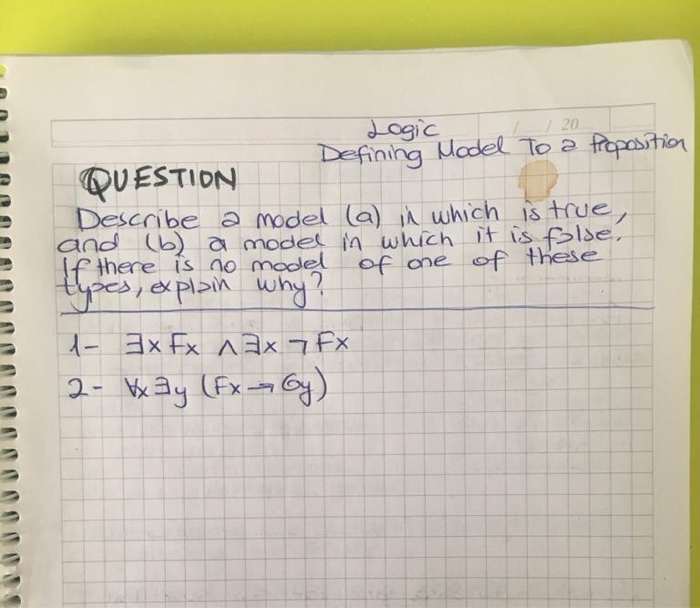 Logic
/ / 20
Defining Model To a Proposition
QUESTION
Describe a model (a) in which is true,
and (b) a model in which it is false.
If there is no model of one of these
types, explain why?
1- ∃x Fx ∧ ∃x ¬ Fx
2- ∀x ∃y (Fx → Gy)